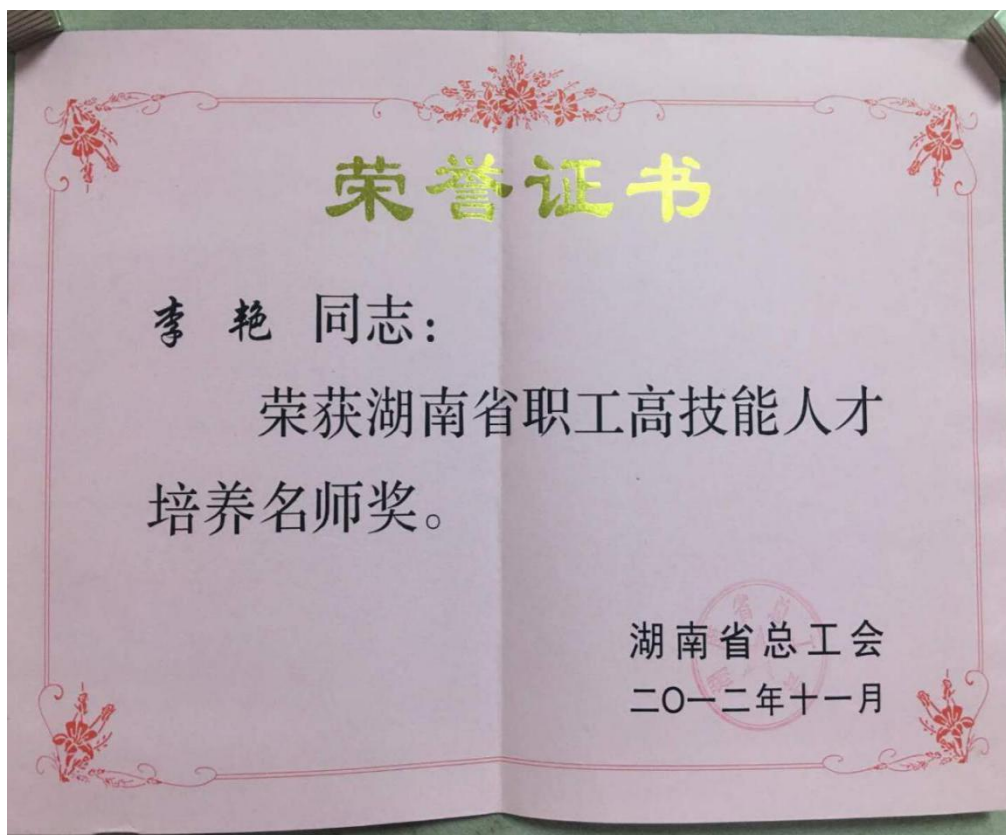 荣誉证书
李艳 同志：
荣获湖南省职工高技能人才
培养名师奖。
湖南省总工会
二〇一二年十一月